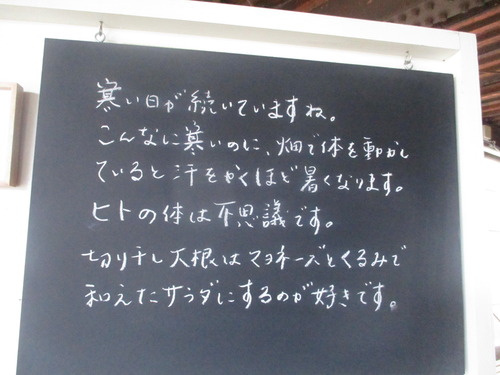 寒い日が続いていますね。
こんなに寒いのに、畑で体を動かし
ていると汗をかくほど暑くなります。
ヒトの体は不思議です。
切り干し大根はマヨネーズとくるみで
和えたサラダにするのが好きです。